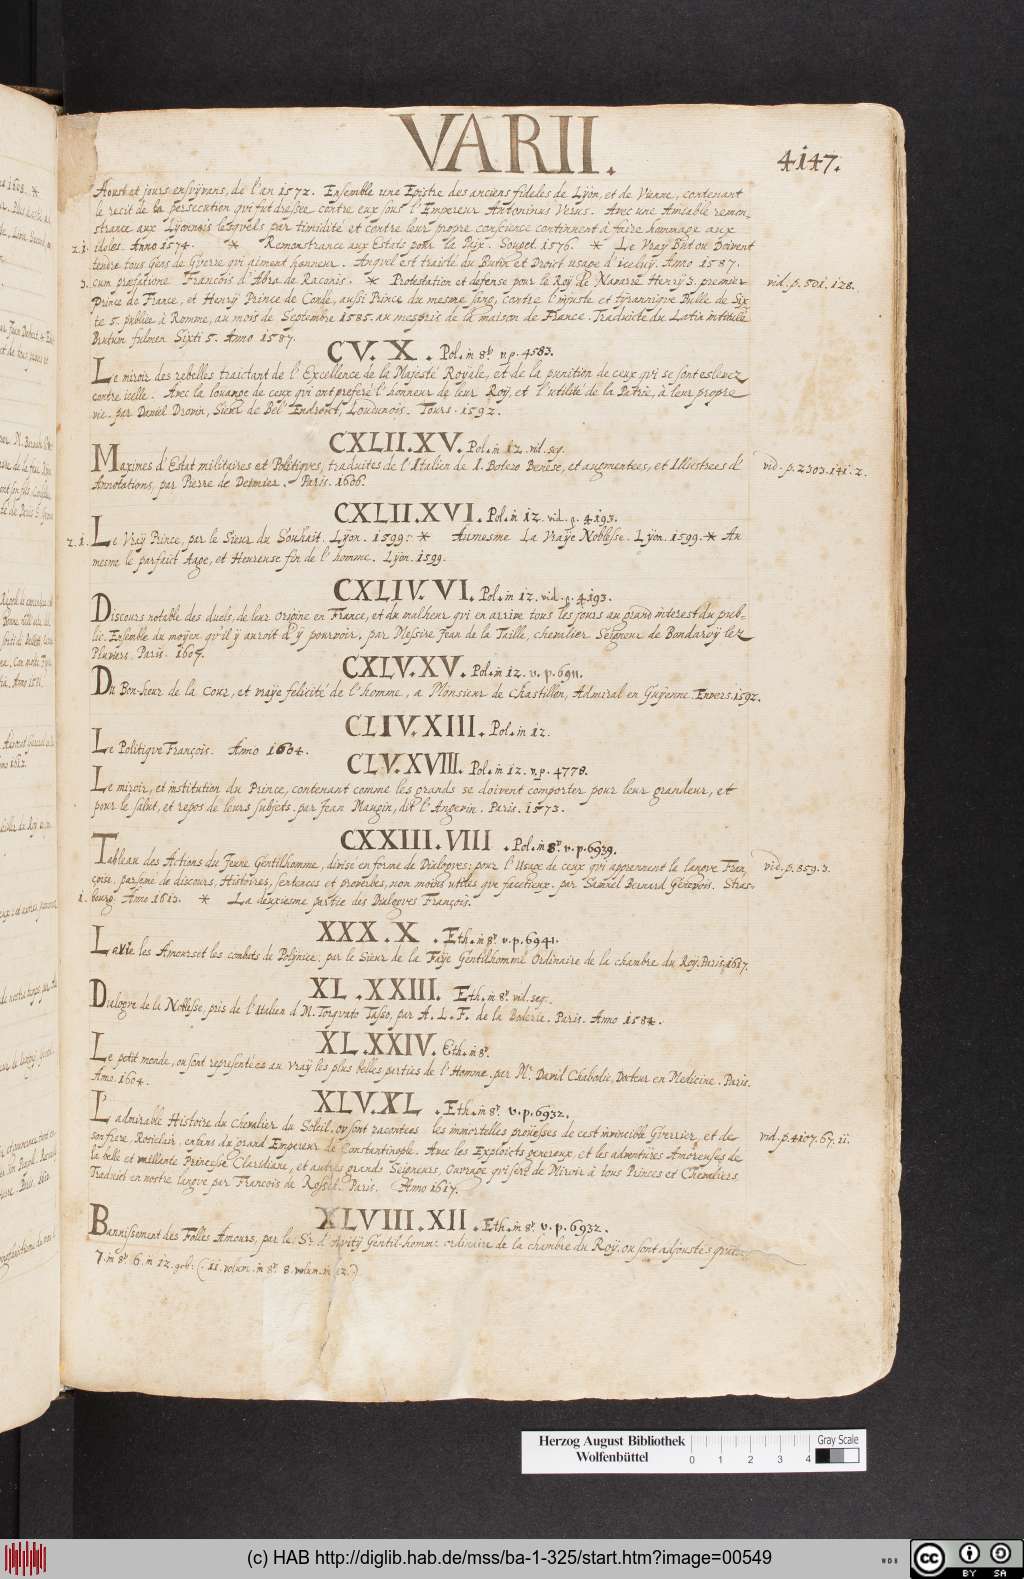 VARII.
4147.
Aoust et jours ensuyvans, de l'an 1572. Ensemble une Epistre des anciens fideles de Lÿon, et de Vienne, contenant
le recit de la persecution qui fut dressée contre eux sous l'Empereur Antoninus Verus. Avec une Amiable remon-
strance aux Lyonnois lesquels par timidité et contre leur propre conscience continuent à faire hommage aux
2.1. idoles. Anno 1574. * Remonstrance aux Estats pour la Paix. Souget. 1576. * Le Vray But où Doivent
tendre tous Gens de Guerre qui aiment honneur. Auquel est traicté du Butin et Droict usage d'iceluy. Anno 1587.
3. cum præfatione François d'Abra de Raconis. * Protestation et defense pour le Roy de Navarre Henry 3. premier
vid. p. 501. 128.
Prince de France, et Henrÿ Prince de Condé, aussi Prince du mesme sang, contre l'injuste et tÿrannique Bulle de Six-
te 5. publiée à Romme, au mois de Septembre 1585. au mespris de la maison de France. Traduicte du Latin intitulé
Brutum fulmen Sixti 5. Anno 1587.
CV. X. Pol. in 8º. v. p. 4583.
Le miroir des rebelles traictant de l'Excellence de la Majesté Royale, et de la punition de ceux qui se sont eslevez
contre icelle. Avec la louange de ceux qui ont preferé l'honneur de leur Roÿ, et l'utilité de la Patrie, à leur propre
vie. par Daniel Drouin, Sieur de Bel'Endroict, Loudunois. Tours. 1592.
CXLII. XV. Pol. in 12. vid. seq.
Maximes d'Estat militaires et Politiques, traduites de l'Italien de I. Botero Benese, et augmentees, et Illustrees d'
vid. p. 2303. 141. 2.
Annotations, par Pierre de Deimier. Paris. 1606.
CXLII. XVI. Pol. in 12. vid. p. 4193.
2.1. Le Vraÿ Prince, par le Sieur du Souhait. Lÿon. 1599. * Au mesme La Vraÿe Noblesse. Lÿon. 1599. * Au
mesme le parfaict Aage, et Heureuse fin de l'homme. Lÿon. 1599.
CXLIV. VI. Pol. in 12. vid. p. 4193.
Discours notable des duels, de leur origine en France, et du malheur qui en arrive tous les jours au grand interest du pub-
lic. Ensemble du moyen qu'il ÿ auroit d'ÿ pourvoir, par Messire Jean de la Taille, chevalier Seigneur de Bondaroÿ lez
Pluviers. Paris. 1607.
CXLV. XV. Pol. in 12. v. p. 6911.
Du Bon-heur de la Cour, et vraÿe felicité de l'homme, a Monsieur de Chastillon, Admiral en Guÿenne. Envers. 1592.
CLIV. XIII. Pol. in 12.
Le Politique François. Anno 1604.
CLV. XVIII. Pol. in 12. v. p. 4778.
Le miroir, et institution du Prince, contenant comme les grands se doivent comporter pour leur grandeur, et
pour le salut, et repos de leurs subjets, par Jean Maugin, dit l'Angevin. Paris. 1573.
CXXIII. VIII. Pol. in 8º. v. p. 6939.
Tableau des Actions du Jeune Gentilhomme, divisé en forme de Dialogves; pour l'Usage de ceux qui apprennent la langve Fran-
vid. p. 859. 3.
çoise, parsemé de discours, Histoires, sentences et proverbes, non moins utiles que facetieux. par Samuel Bernard Genevois. Stras-
1. bourg. Anno 1613. * La deuxiesme partie des Dialogves François.
XXX. X. Eth. in 8º. v. p. 6941.
La vie les Amours et les combets de Polÿnice. par le Sieur de la Faÿe Gentilhomme Ordinaire de la chambre du Roÿ. Paris. 1617.
XL. XXIII. Eth. in 8º. vid. seq.
Dialogve de la Noblesse, pris de l'Italien d'M. Torquato Tasso, par A. L. F. de la Boderie. Paris. Anno 1584.
XL. XXIV. Eth. in 8º.
Le petit monde, ou sont representées au vraÿ les plus belles parties de l'Homme. par Mr. David Chabodie, Docteur en Medicine. Paris.
Anno 1604.
XLV. XL. Eth. in 8º. v. p. 6932.
L'admirable Histoire du Chevalier du Soleil. ou sont racontees les immortelles proüesses de cest invincible Gverrier, et de
vid. p. 4107. 67. 11.
son frere, Rosiclair, enfans du grand Empereur de Constantinople. Avec les Exploicts genereux, et les adventures Amoreuses de
la belle et vaillante Princesse Claridiane, et autres grands Seigneurs. Ouvrage qui sert de Miroir à tous Princes et Chevaliers.
Traduit en nostre langue par François de Rosset. Paris. Anno 1617.
XLVIII. XII. Eth. in 8º. v. p. 6932.
Bannissement des Folles Amours, par le Sr. d'Avitÿ Gentil-homme ordinaire de la chambre du Roÿ. ou sont adjoustés
7. in 8º. 6. in 12. geb: (. 11. volum. in 8º. 8. volum. in 12.)
Herzog August Bibliothek
Wolfenbüttel
0 1 2 3 4
Gray Scale
(c) HAB http://diglib.hab.de/mss/ba-1-325/start.htm?image=00549
WDB
cc BY SA